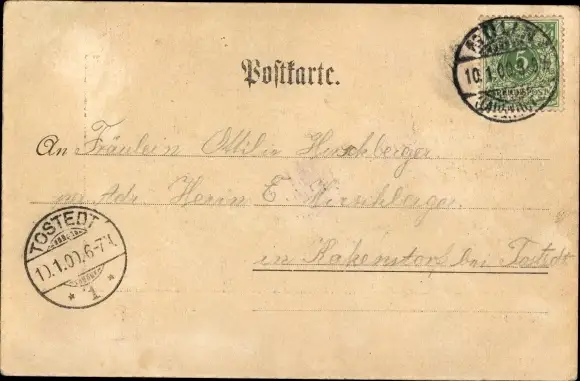 Postkarte.
5
REICHSPOST
10.1.00
(HANNOVER)
An Fräulein Ottilie Hirschberger
per Adr. Herrn E. Hirschberger
in Kakenstorf bei Tostedt
TOSTEDT
10.1.00.6-7N.
* 1 *